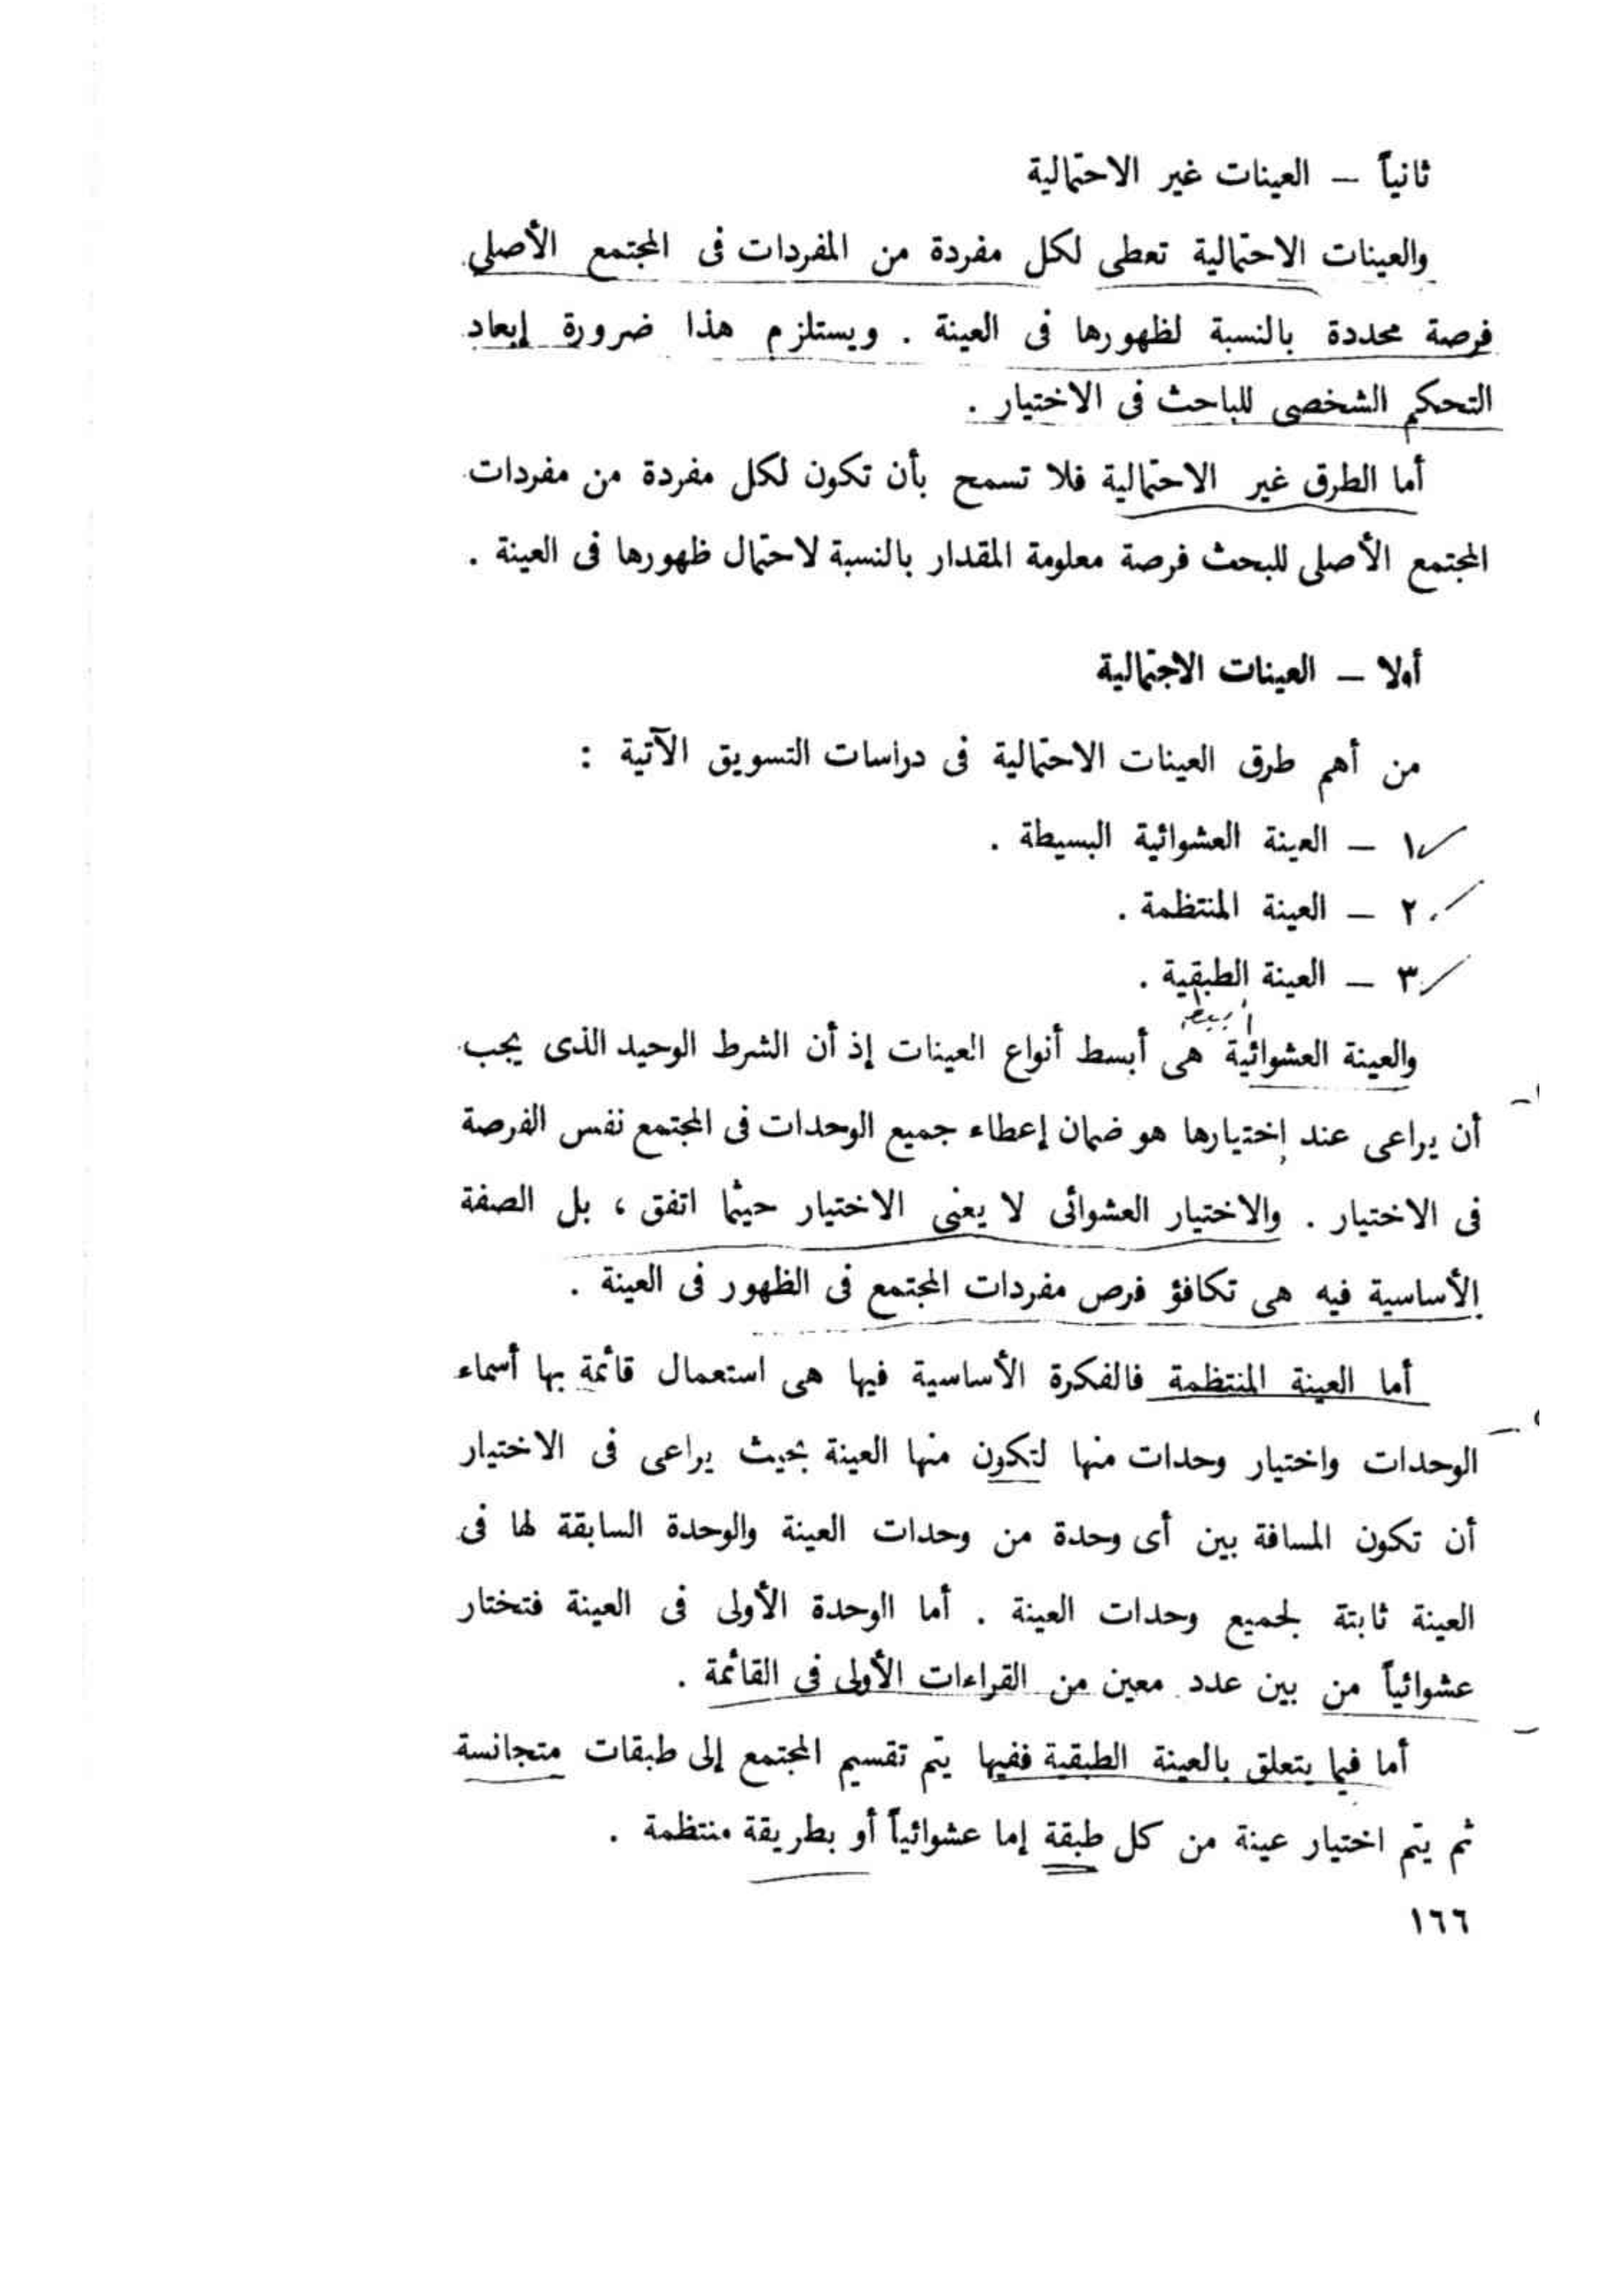 ثانياً – العينات غير الاحتمالية
والعينات الاحتمالية تعطى لكل مفردة من المفردات فى المجتمع الأصلى
فرصة محددة بالنسبة لظهورها فى العينة . ويستلزم هذا ضرورة إبعاد
التحكم الشخصى للباحث فى الاختيار .
أما الطرق غير الاحتمالية فلا تسمح بأن تكون لكل مفردة من مفردات
المجتمع الأصلى للبحث فرصة معلومة المقدار بالنسبة لاحتمال ظهورها فى العينة .
أولا – العينات الاحتمالية
من أهم طرق العينات الاحتمالية فى دراسات التسويق الآتية :
١ – العينة العشوائية البسيطة .
٢ – العينة المنتظمة .
٣ – العينة الطبقية .
والعينة العشوائية هى أبسط أنواع العينات إذ أن الشرط الوحيد الذى يجب
أن يراعى عند إختيارها هو ضمان إعطاء جميع الوحدات فى المجتمع نفس الفرصة
فى الاختيار . والاختيار العشوائى لا يعنى الاختيار حيثما اتفق ، بل الصفة
الأساسية فيه هى تكافؤ فرص مفردات المجتمع فى الظهور فى العينة .
أما العينة المنتظمة فالفكرة الأساسية فيها هى استعمال قائمة بها أسماء
الوحدات واختيار وحدات منها لتكون منها العينة بحيث يراعى فى الاختيار
أن تكون المسافة بين أى وحدة من وحدات العينة والوحدة السابقة لها فى
العينة ثابتة لجميع وحدات العينة . أما الوحدة الأولى فى العينة فتختار
عشوائياً من بين عدد معين من القراءات الأولى فى القائمة .
أما فيما يتعلق بالعينة الطبقية ففيها يتم تقسيم المجتمع إلى طبقات متجانسة
ثم يتم اختيار عينة من كل طبقة إما عشوائياً أو بطريقة منتظمة .
١٦٦